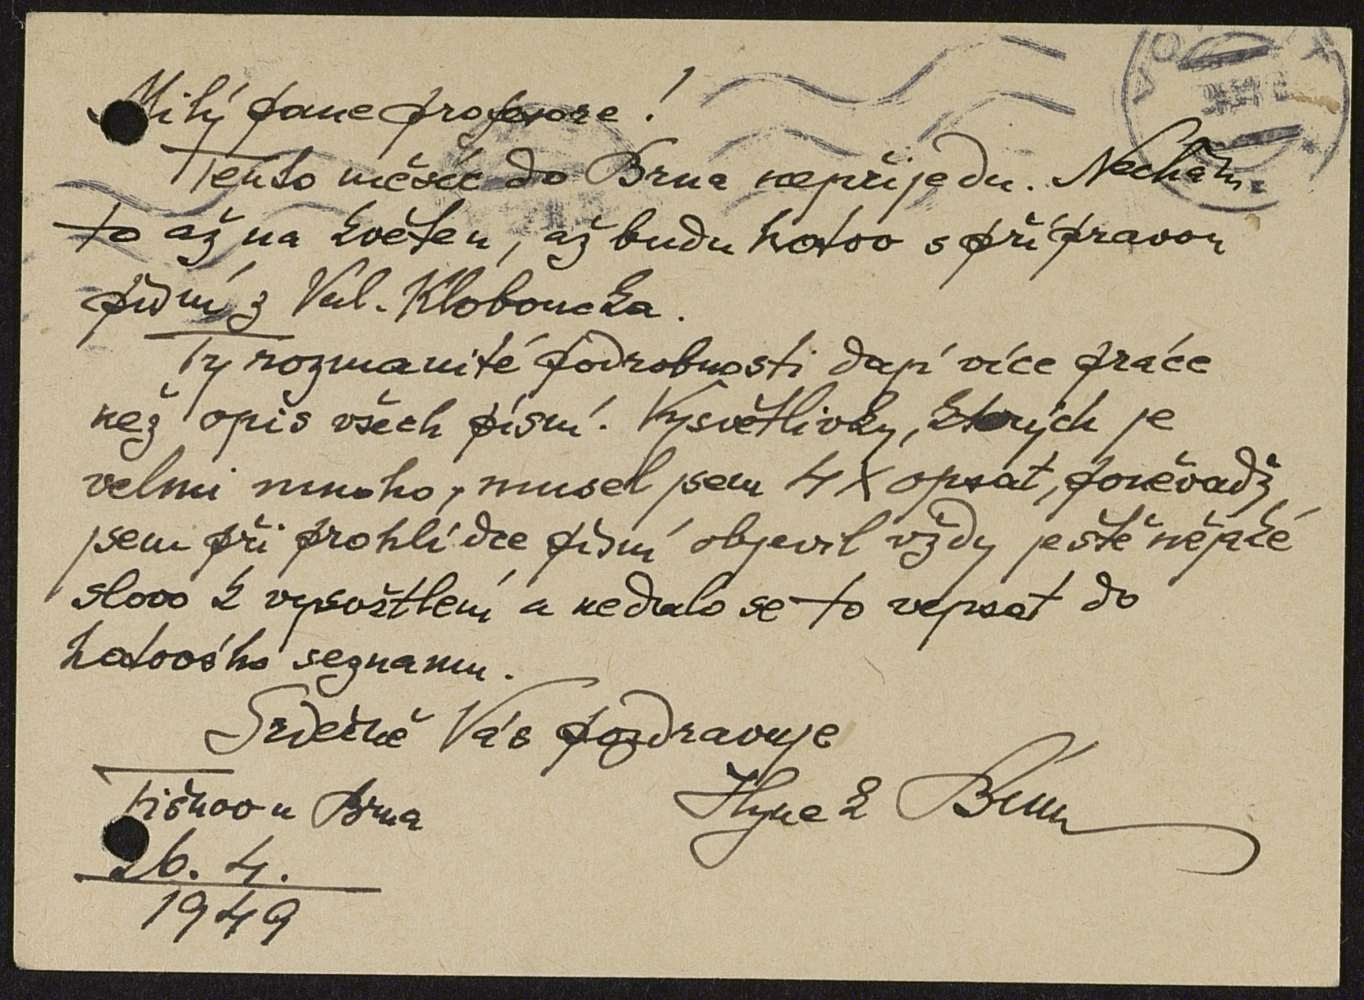 Milý pane profesore!
Tento měsíc do Brna nepřijedu. Nechám
to až na květen, až budu hotov s přípravou
písní z Val. Kloboucka.
Ty rozmanité podrobnosti dají více práce
než opis všech písní. Vysvětlivky, kterých je
velmi mnoho, musel jsem 4 x opsat, poněvadž
jsem při prohlídce písní objevil vždy ještě nějaké
slovo k vysvětlení a nedalo se to vepsat do
hotového seznamu.
Srdečně Vás pozdravuje
Tišnov u Brna
Hynek Bím
26. 4.
1949